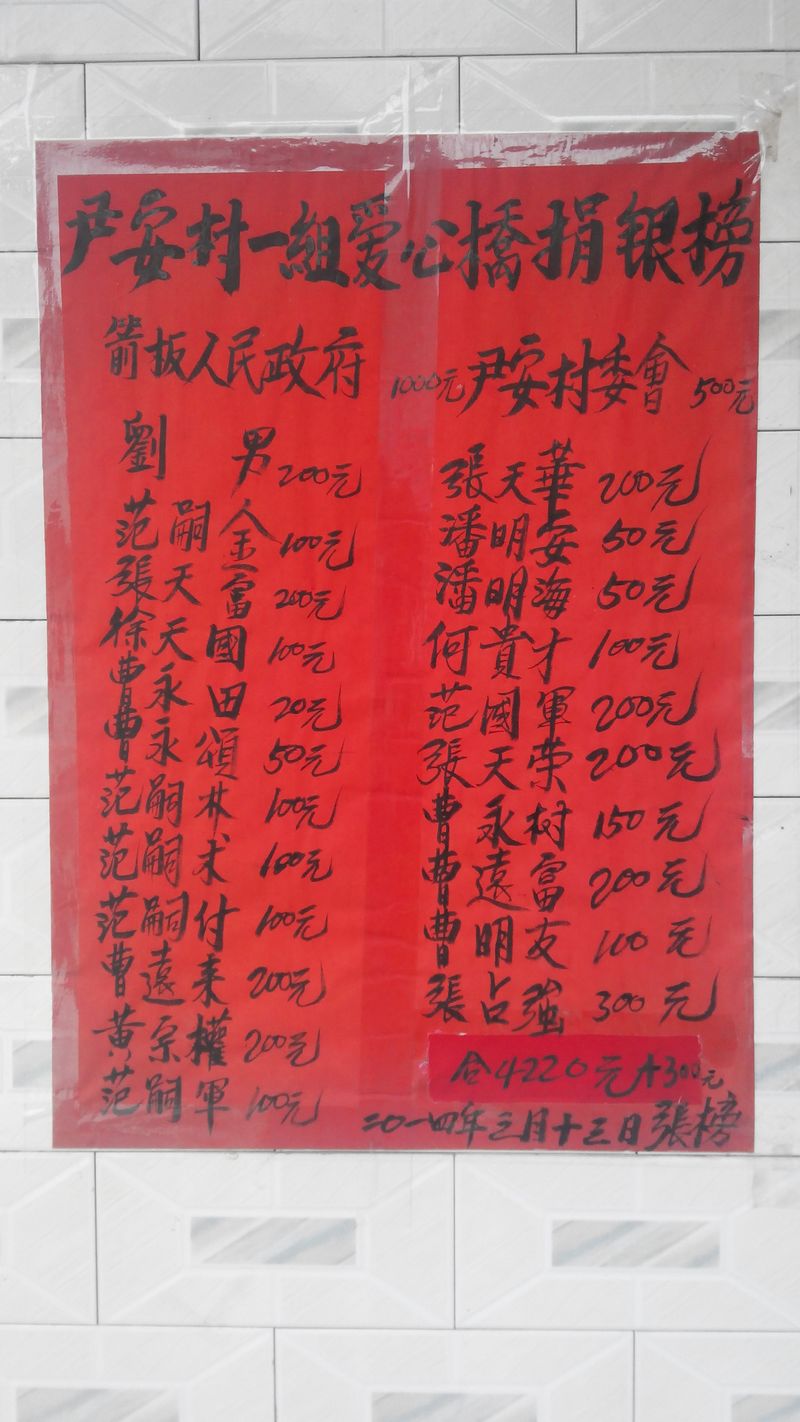 尹安村一組爱心橋捐银榜
箭扳人民政府 1000元 尹安村委會 500元
劉男 200元
范嗣金 100元
張天富 200元
徐天國 100元
曹永田 20元
曹永頌 50元
范嗣林 100元
范嗣术 100元
范嗣付 100元
曹遠来 200元
黄宗權 200元
范嗣軍 100元
張天華 200元
潘明安 50元
潘明海 50元
何貴才 100元
范國軍 200元
張天荣 200元
曹永树 150元
曹遠富 200元
曹明友 100元
張占強 300元
合4220元+300元
二〇一四年三月十三日張榜